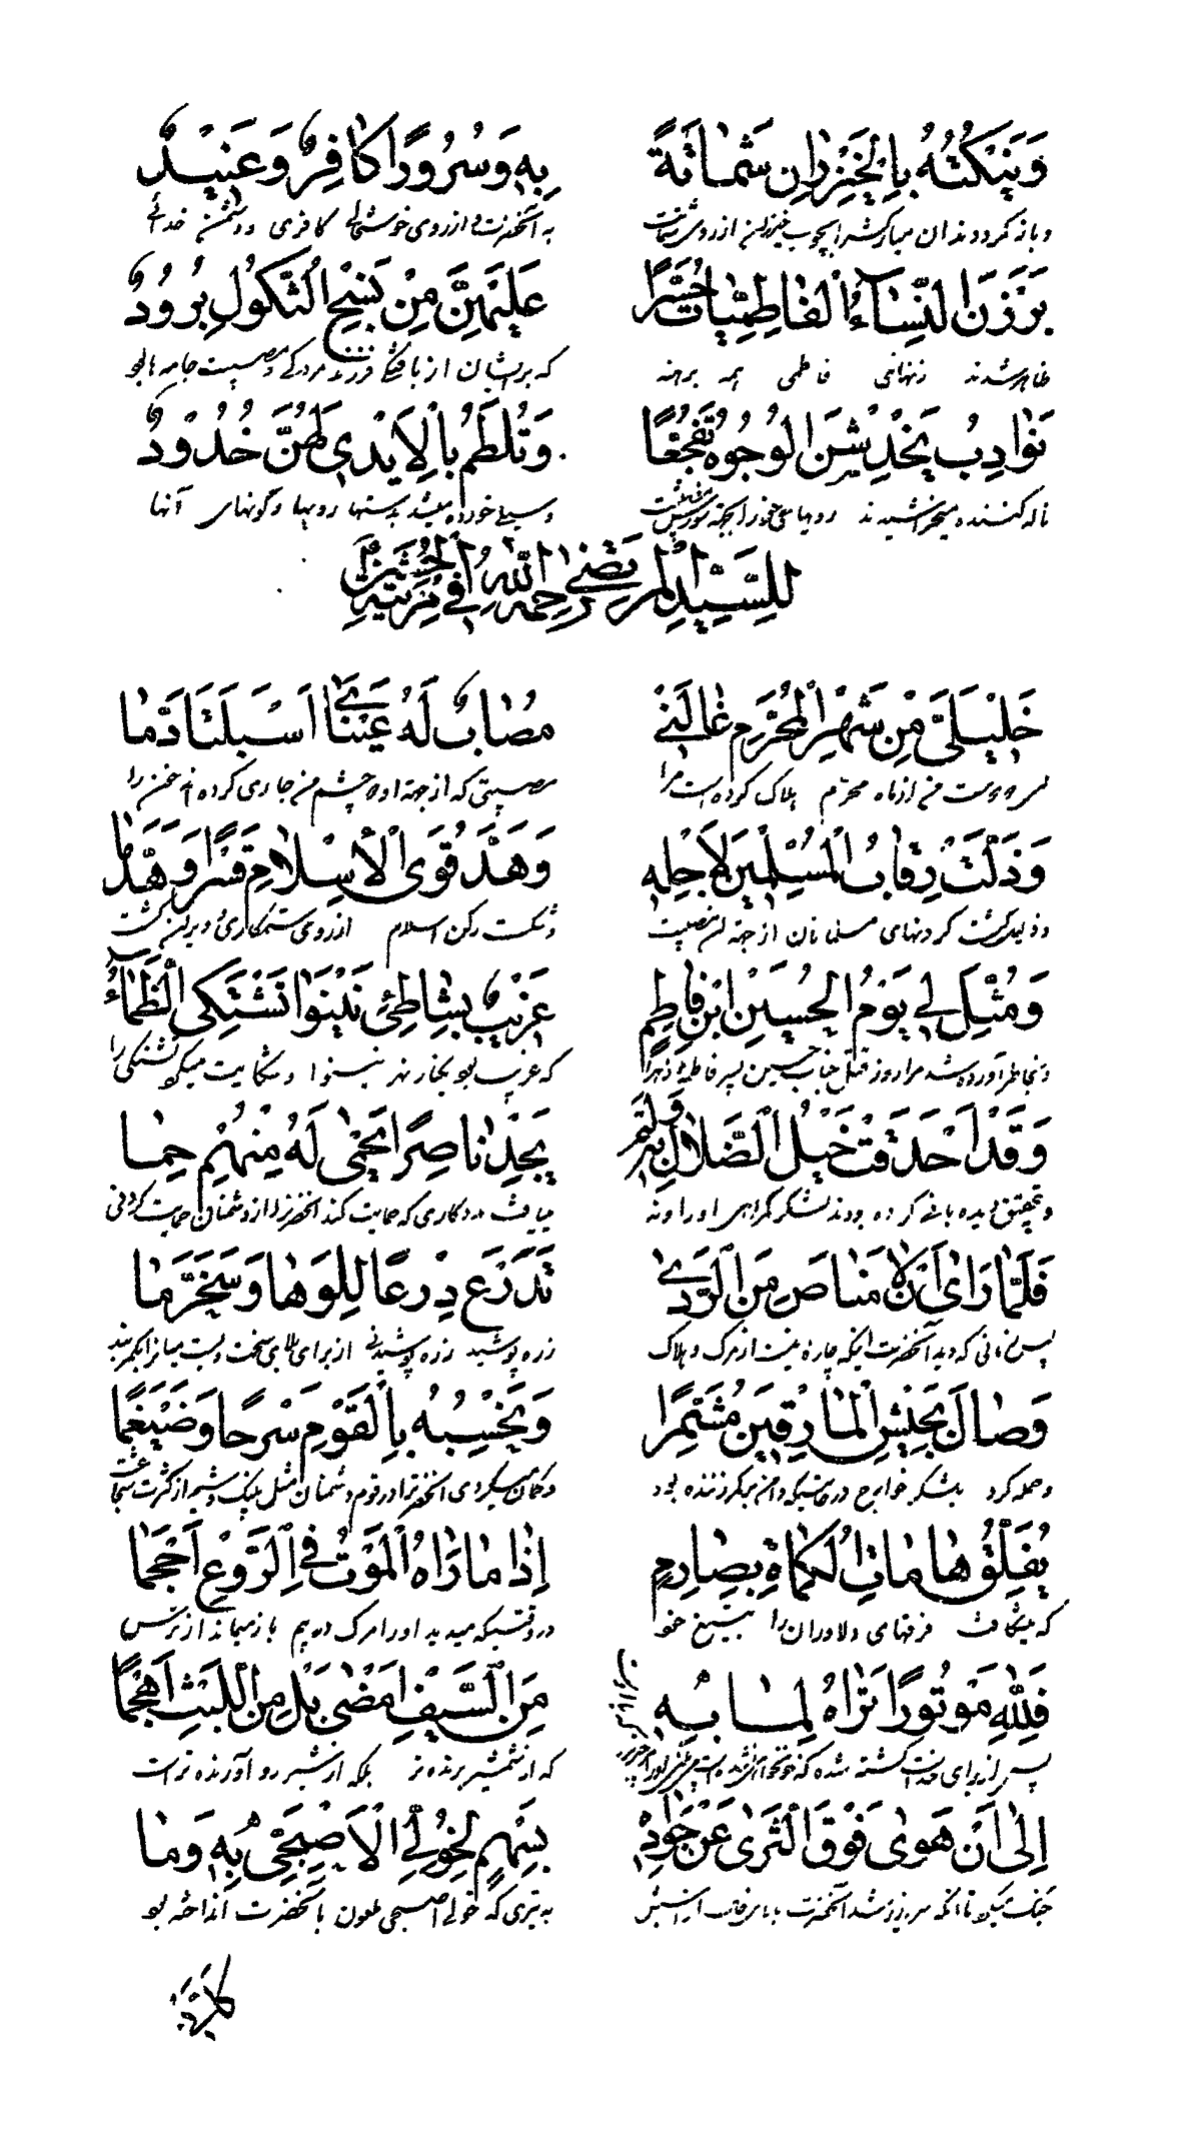 وَيَنْكُتُهُ بِالْخَيْزُرانِ شَماتَةً بِهِ وَسُرُورًا كافِرٌ وَعَنِيدٌ
به آنحضرت و از روی خوشحالی کافری و دشمن خدائی
بَرَزْنَ النِّساءُ الْفاطِمِيّاتُ حُسَّرًا عَلَيْهِنَّ مِنْ نَسْجِ الثُّكُولِ بُرُودٌ
ظاهر شدند زنهای فاطمی همه برهنه که بر ایشان از بافتگی فرزند مردگی و مصیبت جامه ها بود
نَوادِبُ يَخْدِشْنَ الْوُجُوهَ تَفَجُّعًا وَتُلْطَمُ بِالْاَيْدِي لَهُنَّ خُدُودٌ
ناله کننده میخراشیدند رویهای خود را وسیلی خورده میشد بدستها رویها و گونهای آنها
لِلسَّيِّدِ الْمُرْتَضى رَحِمَهُ اللهُ في مَرْثِيَةِ الْحُسَيْنِ
خَلِيلَيَّ مِنْ شَهْرِ الْمُحَرَّمِ غالَني مُصابٌ لَهُ عَيْنايَ اَسْبَلَتا دَما
ای دو دوست من از ماه محرم هلاک کرده است مرا مصیبتی که از جهة او دو چشم من جاری کرده اند خون را
وَذَلَّتْ رِقابُ الْمُسْلِمِينَ لِاَجْلِهِ وَهَدَّ قُوَى الْاِسْلامِ قَسْرًا وَهَدَّما
و ذلیل گشت گردنهای مسلمانان از جهة این مصیبت و شکست رکن اسلام از روی ستمکاری و ویران گشت
وَمُثِّلَ لي يَوْمُ الْحُسَيْنِ ابْنِ فاطِمٍ غَرِيبٌ بِشاطِئِ نَيْنَوا تَشْتَكِى الظَّماءُ
و بخاطر آورده شد مرا روز قتل جناب حسین پسر فاطمه زهرا که غریب بود بکنار نهر نینوا و شکایت میکرد تشنگی را
وَقَدْ اَحْدَقَتْ خَيْلُ الضَّلالِ بِهِ وَلَمْ يَجِدْ ناصِرًا يَحْمى لَهُ مِنْهُمُ حِما
و بتحقیق دیده بانی کرده بودند لشکر گمراهی او را و نه مییافت مددکاری که حمایت کند آنحضرت را از دشمنان حمایت کردنی
فَلَمّا رَاىٰ اَنْ لا مَناصَ مِنَ الرَّدىٰ تَدَرَّعَ دِرْعًا لِلِوَها وَتَحَزَّما
پس زمانی که دید آنحضرت اینکه چاره نیست از مرگ و هلاک زره پوشید زره پوشیدنی از برای بلای سخت و بست میان را بکمر بند
وَصالَ بِجَيْشِ الْمارِقِينَ مُشَمِّرًا وَتَحْسِبُهُ بِالْقَوْمِ سَرْحا وَضَيْغَما
و حمله کرد بلشکر خوارج در حالتیکه دامن بر کمر زننده بود و گمان میکردی آنحضرت را در قوم دشمنان مثل پلنگ و شیر از کثرت شجاعت
يُفَلِّقُ هاماتِ الْكُماةِ بِصارِمٍ اِذا ما رَاٰهُ الْمَوْتُ فِي الرَّوْعِ اَحْجَما
که میشکافت فرقهای دلاوران را بتیغ خود در وقتیکه میدید او را مرگ در بیم باز میماند از ترس
فَلِلّٰهِ مَوْتُورًا تَراهُ لِما بِهِ مِنَ السَّيْفِ اَمْضىٰ بَلْ مِنَ اللَّيْثِ اَهْجَما
پس از برای خداست کشته شده که از شمشیر برنده تر بلکه از شیر رو آورنده تر است
اِلىٰ اَنْ هَوىٰ فَوْقَ الثَّرىٰ عَنْ جَوادِهِ بِسَهْمٍ لِخَوْلِيِّ الْاَصْبَحِيِّ بِهِ وَما
به تیری که خولی اصبحی ملعون بآنحضرت انداخته بود